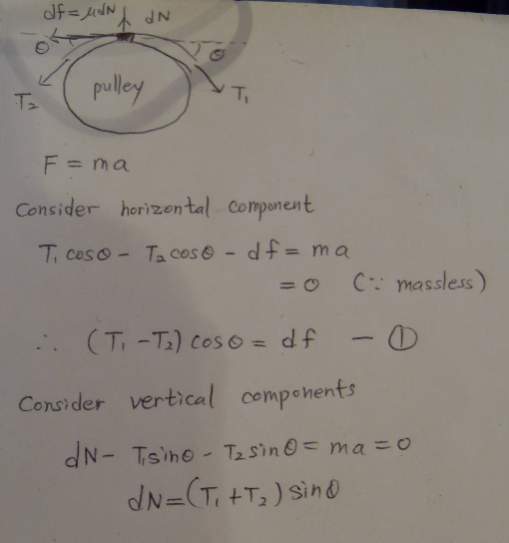 df=μdN dN
θ θ
T₂ pulley T₁
F = ma
Consider horizontal component
T₁cosθ - T₂cosθ - df = ma
= 0 (∵ massless)
∴ (T₁ - T₂) cosθ = df — ①
Consider vertical components
dN - T₁sinθ - T₂sinθ = ma = 0
dN = (T₁ + T₂) sinθ